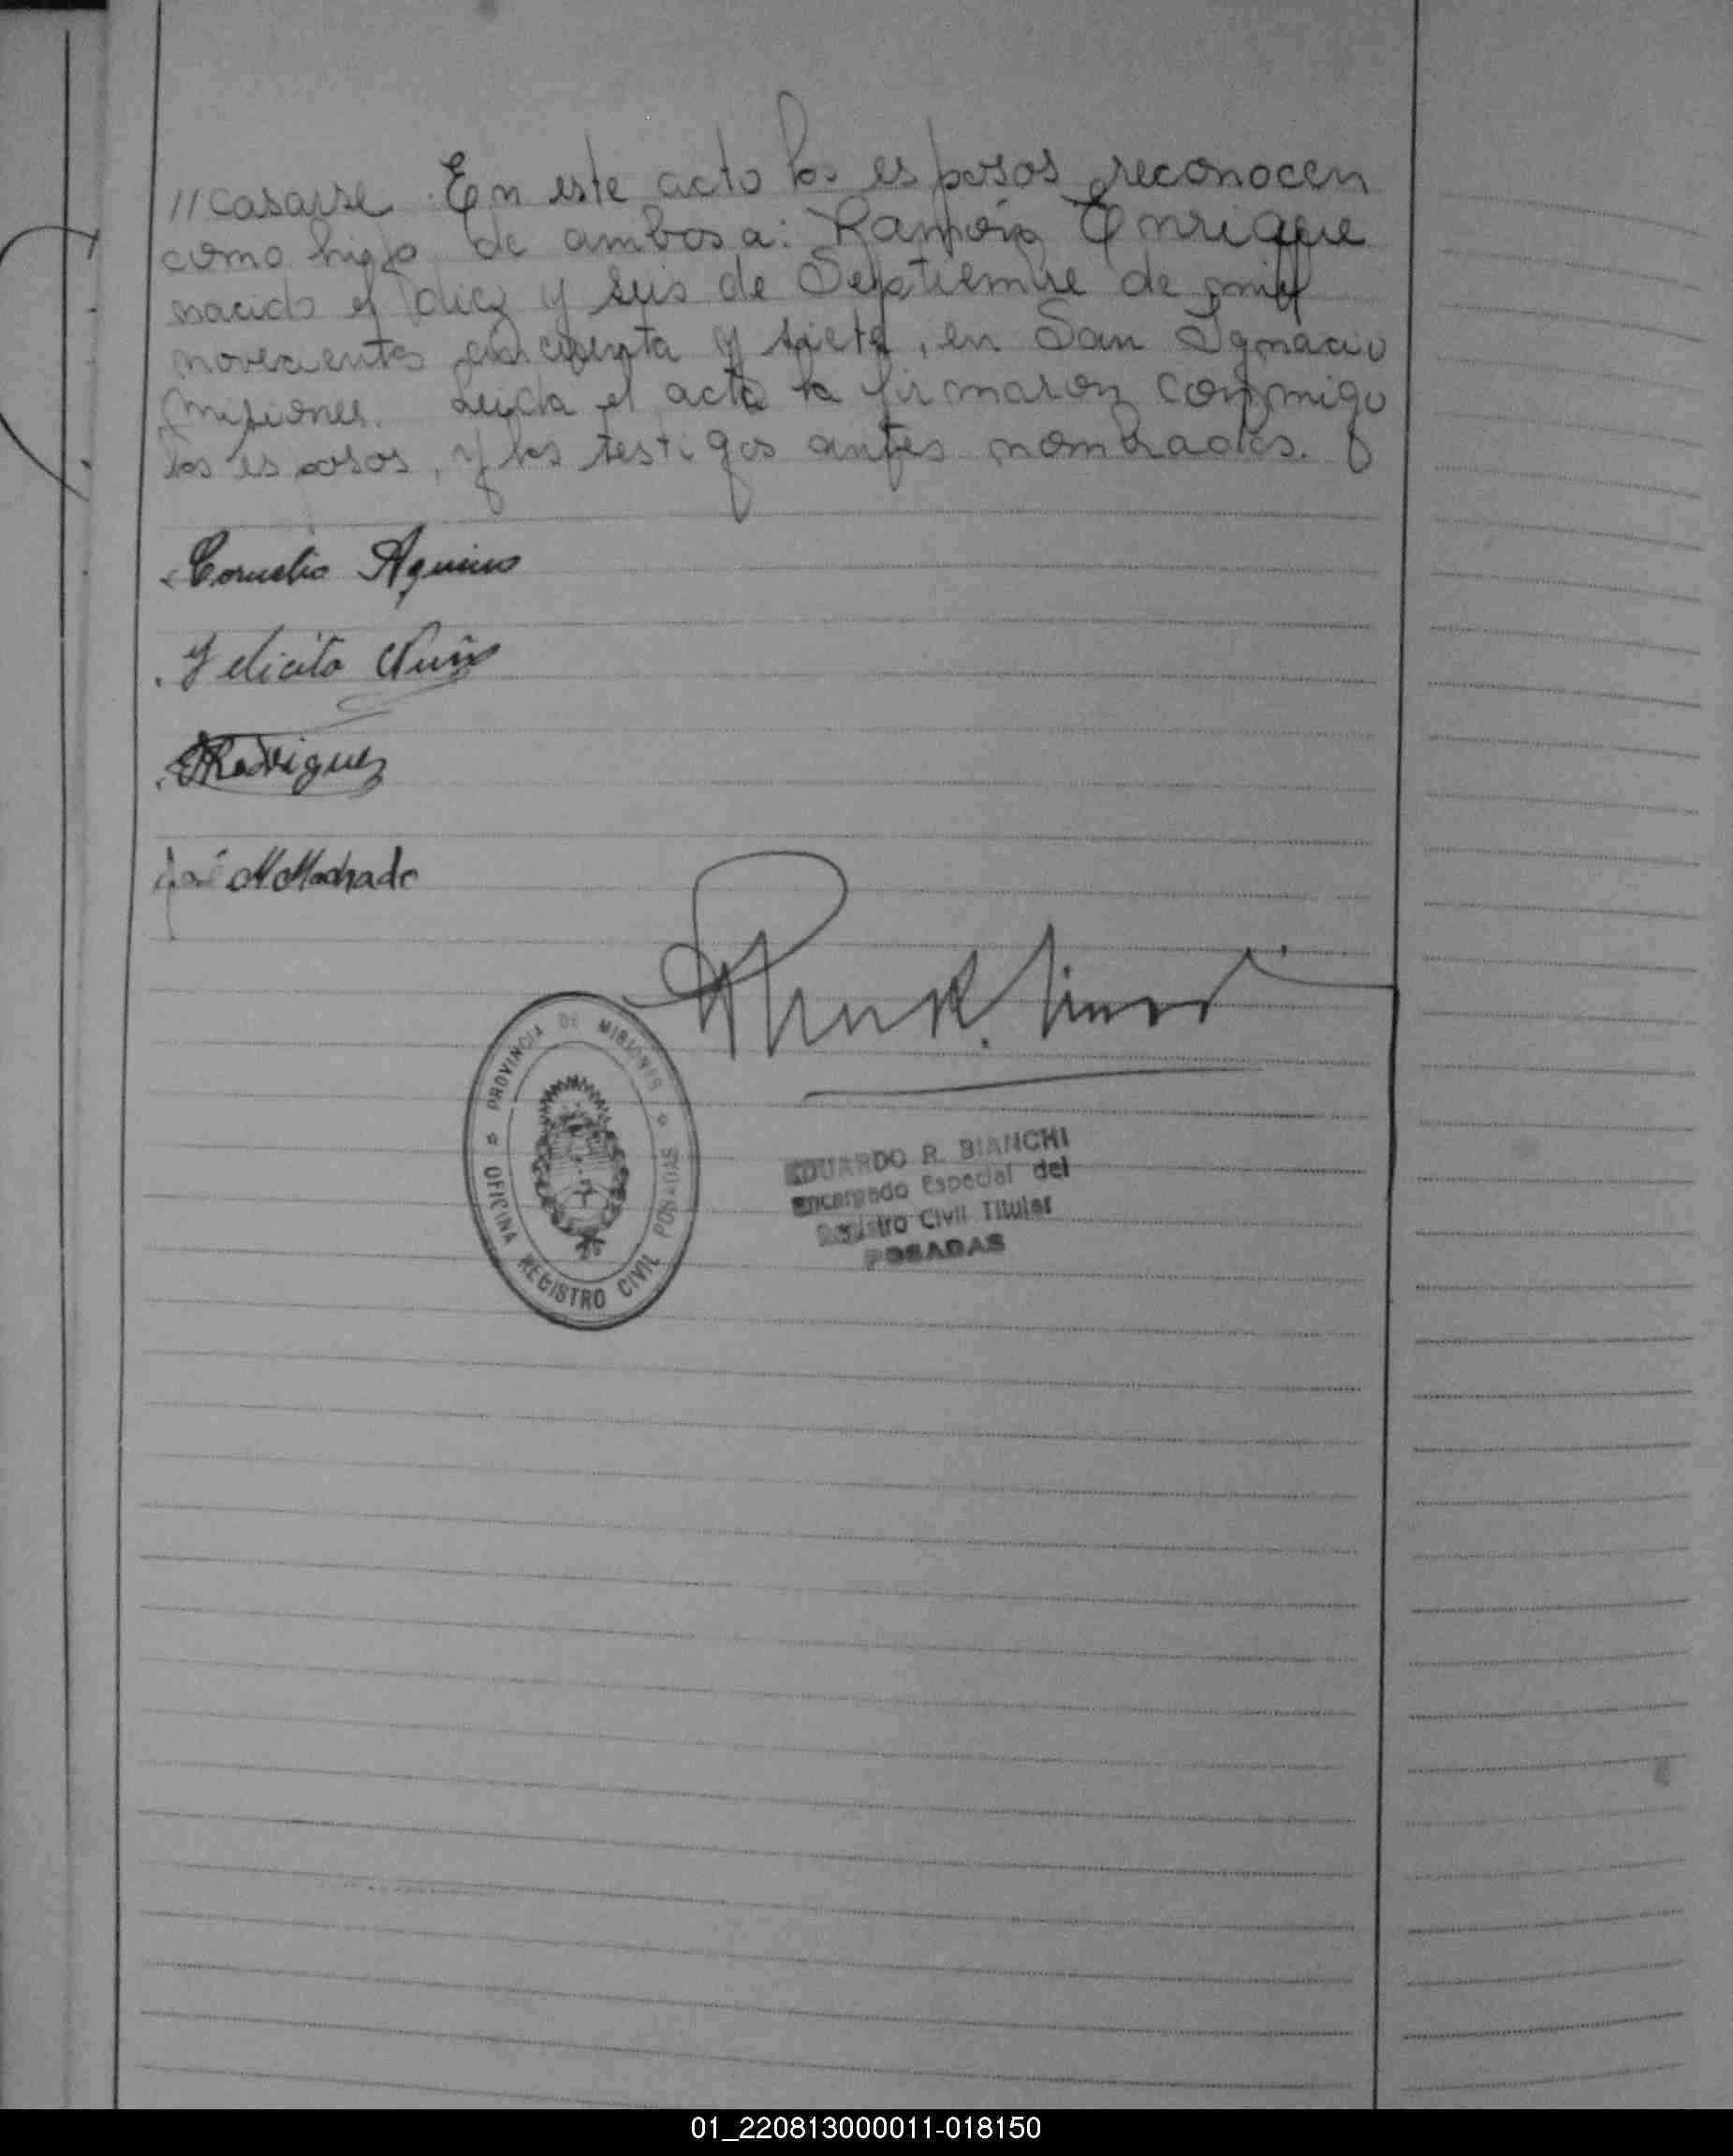 //casarse. En este acto los esposos reconocen
como hijo de ambos a: Ramón Enrique
nacido el diez y seis de Septiembre de mil
novecientos cincuenta y siete, en San Ignacio
Misiones. Leida el acta la firmaron conmigo
los esposos, y los testigos antes nombrados.
Cornelio Aquino
Felicita Nuñz
Rodriguez
José M Machado
PROVINCIA DE MISIONES
OFICINA REGISTRO CIVIL POSADAS
EDUARDO R. BIANCHI
Encargado Especial del
Registro Civil Titular
POSADAS
01_220813000011-018150